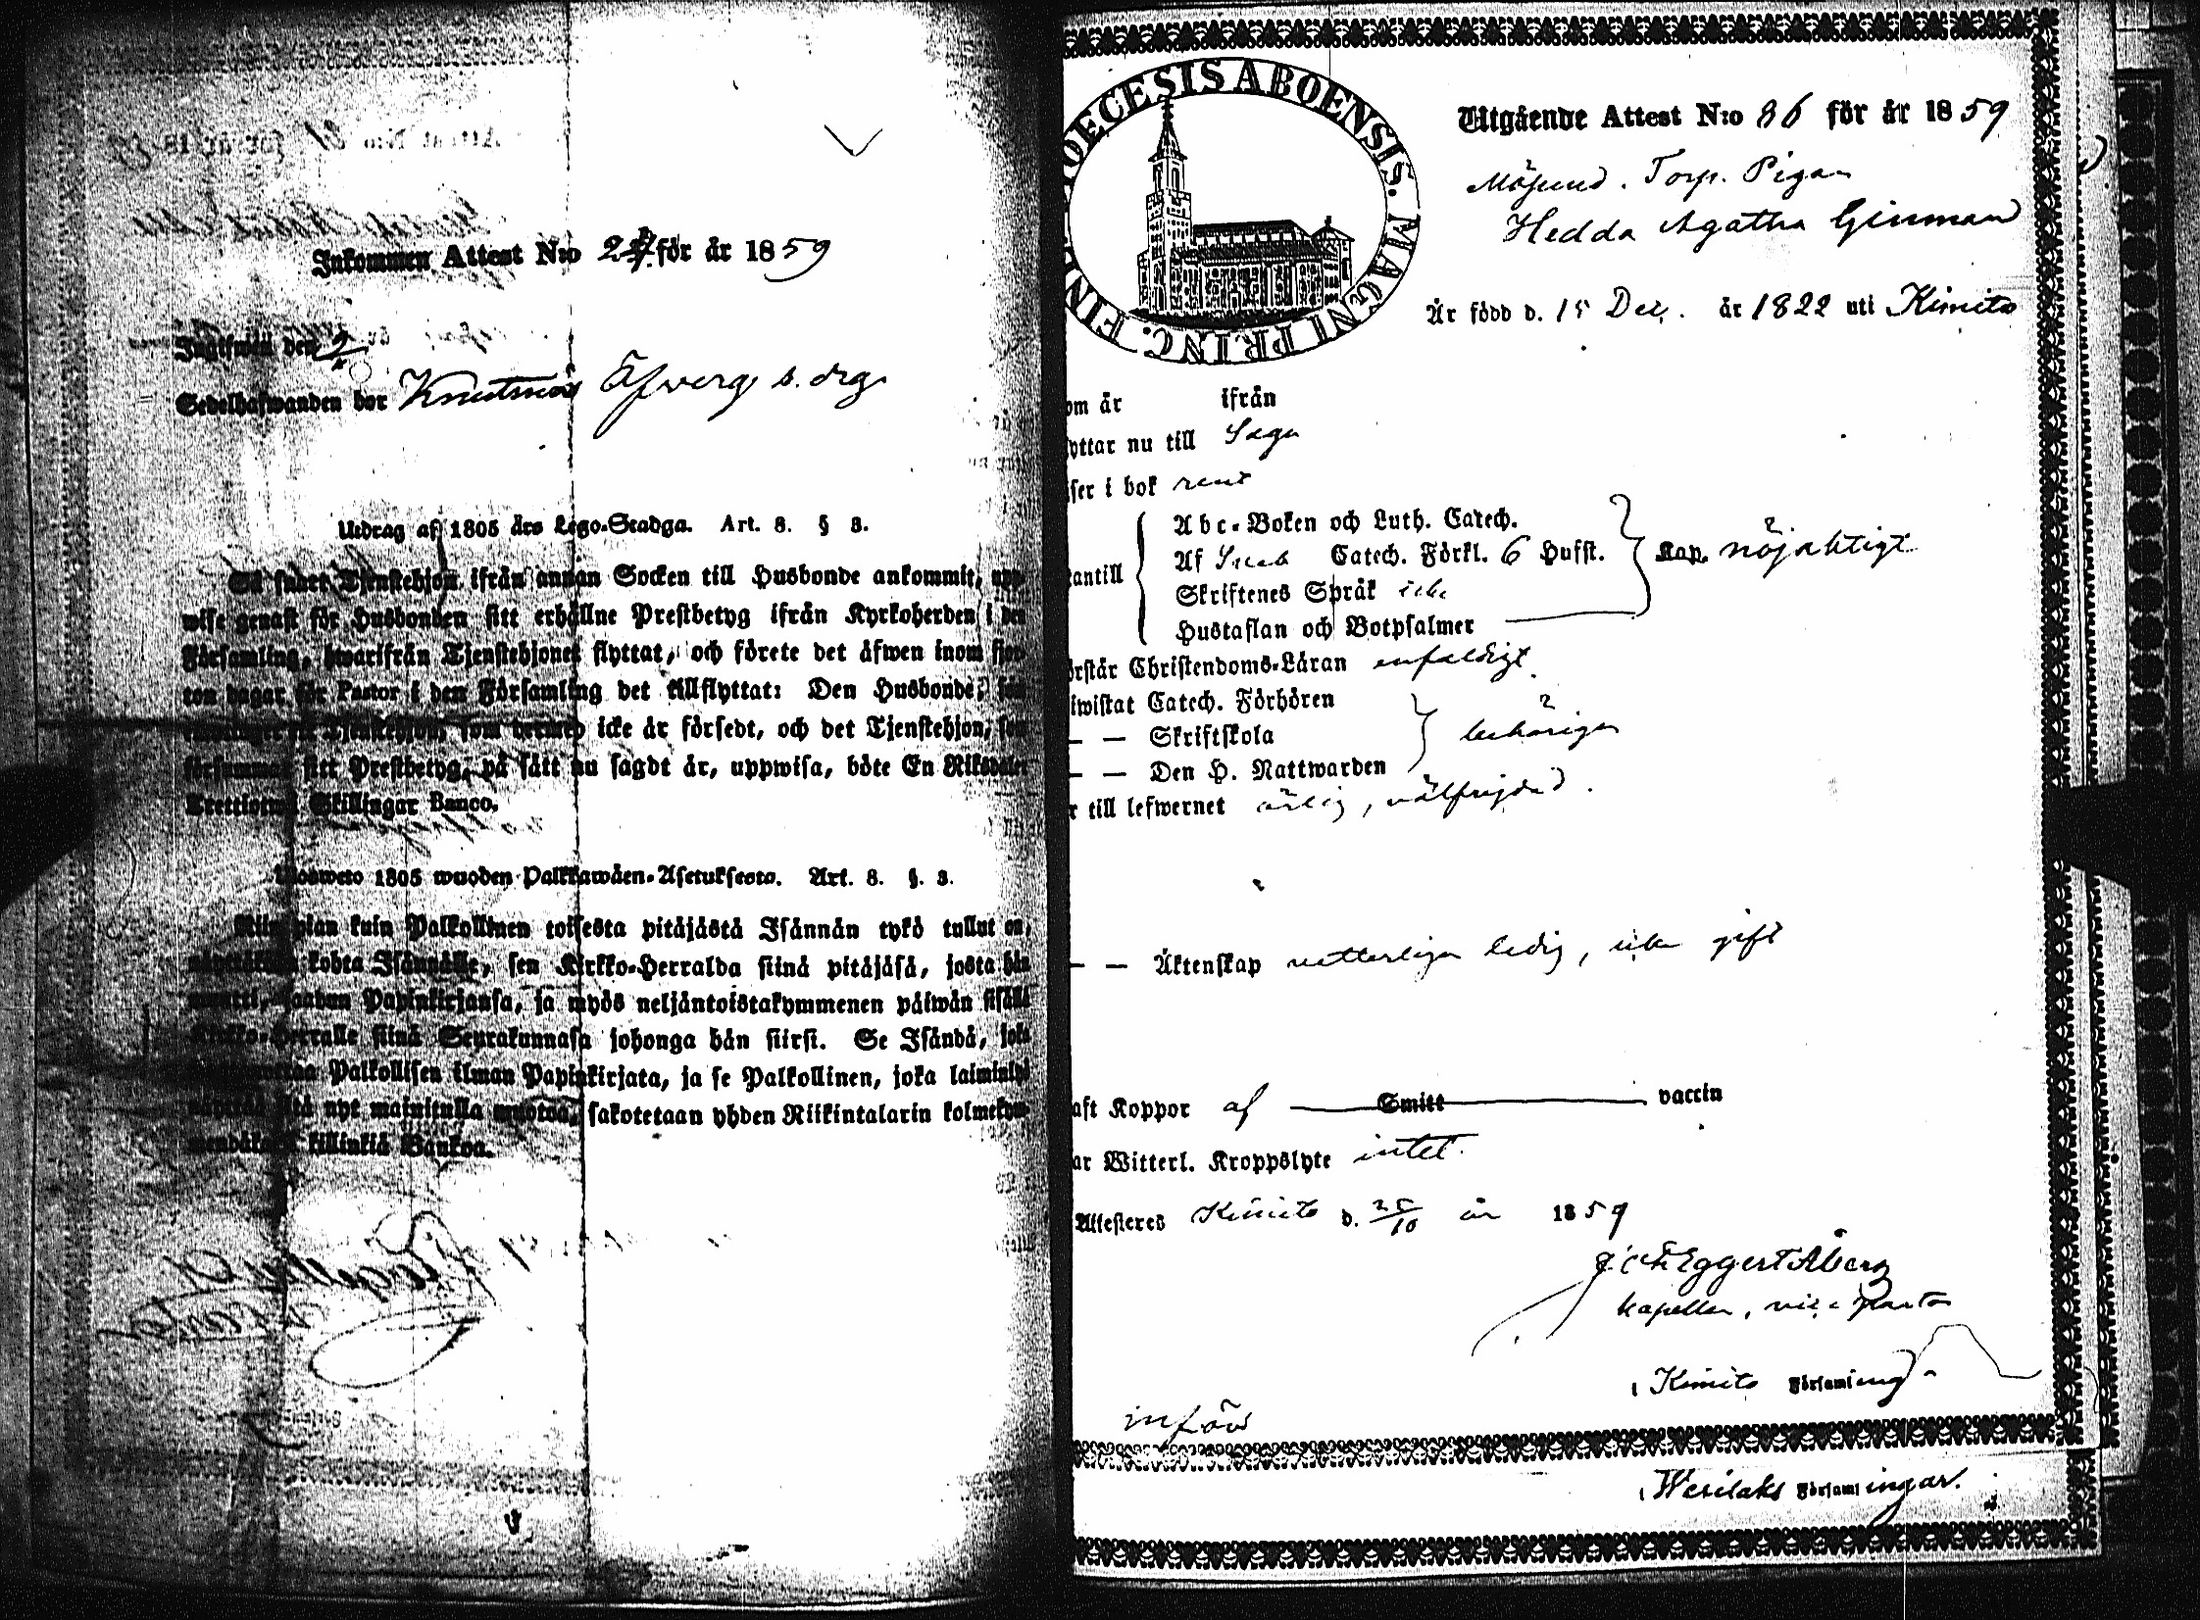 Inkommen Attest N:o 24 för år 1859
Ingifwen den 2/11
Sedelhafwanden bor Knutnäs Öfverg s. drg
Utdrag af 1805 års Lego-Stadga. Art. 8. § 3.
Så snart Tjenstehjon ifrån annan Socken till Husbonde ankommit, upp-
wise genast för Husbonden sitt erhållne Prestbetyg ifrån Kyrkoherden i den
Församling, hwarifrån Tjenstehjonet flyttat, och förete det äfwen inom fjor-
ton dagar för Pastor i den Församling det tillflyttat: Den Husbonde, som
Tjenstehjon, som dermed icke är försedt, och det Tjenstehjon, som
försummar sitt Prestbetyg, på sätt nu sagdt är, uppwisa, böte En Riksdaler
Trettiotwå Skillingar Banco.
Ulosweto 1805 wuoden Palkkawäen-Asetuksesta. Art. 8. §. 3.
Niin pian kuin Palkollinen toisesta pitäjästä Isännän tykö tullut on,
kohta Isännälle, sen Kirkko-Herralda siinä pitäjäsä, josta hän
muutti, saadun Papinkirjansa, ja myös neljäntoistakymmenen päiwän sisällä
Kirkko-Herralle siinä Seurakunnasa johonga hän siirsi. Se Isändä, joka
Palkollisen ilman Papinkirjata, ja se Palkollinen, joka laiminlyö
näyttää sitä nyt mainitulla muotoa, sakotetaan yhden Riikintalarin kolmekym-
mendäkaxi killinkiä Bankoa.
DIOECESIS ABOENSIS. MAGNI PRINC. FINL
Utgående Attest N:o 86 för år 1859
Mösund. Torp. Pigan
Hedda Agatha Ginman
År född d. 15 Dec. år 1822 uti Kimito
om år ifrån
yttar nu till Sagu
äser i bok rent
Abc-Boken och Luth. Catech.
Af Sueb Catech. Förkl. 6 Hufst.
Kap. nöjaktigt
tantill
Skriftenes Språk icke
Hustaflan och Botpsalmer
örstår Christendoms-Läran enfaldigt
iwistat Catech. Förhören
— — Skriftskola
behörigen
— — Den H. Nattwarden
r till lefwernet ärlig, välfrejdad.
— — Äktenskap vetterligen ledig, icke gift
aft Koppor af Smitt vaccin
ar Witterl. Kroppslyte intet.
Attesteres Kimito d. 25/10 år 1859
Eggert Åberg
kapellan, vice pastor
i Kimito Församling
införd
i Wesilaks Församlingar.